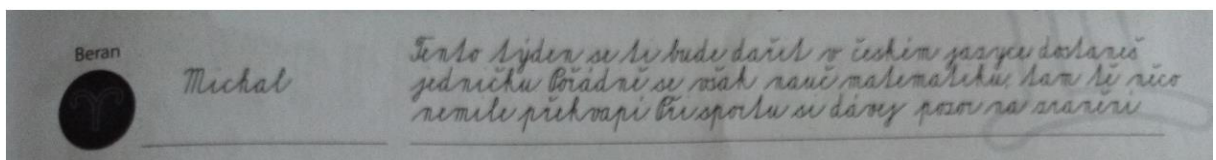 Beran
Michal
Tento týden se ti bude dařit v českém jazyce dostaneš
jedničku Pořádně se však nauč matematiku, tam tě něco
nemile překvapí Při sportu si dávej pozor na zranění